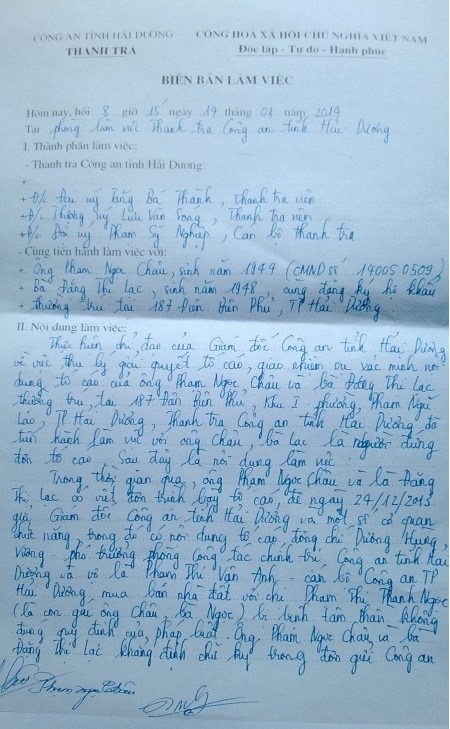 CÔNG AN TỈNH HẢI DƯƠNG
THANH TRA
CỘNG HOÀ XÃ HỘI CHỦ NGHĨA VIỆT NAM
Độc lập - Tự do - Hạnh phúc
BIÊN BẢN LÀM VIỆC
Hôm nay, hồi 8 giờ 15 ngày 14 tháng 01 năm 2014
Tại phòng làm việc Thanh tra Công an tỉnh Hải Dương
I. Thành phần làm việc:
- Thanh tra Công an tỉnh Hải Dương:
+
+ Đ/c Đại uý Tăng Bá Thành, Thanh tra viên
+ Đ/c Thượng uý Lưu Văn Song, Thanh tra viên
+ Đ/c Đại uý Phạm Sỹ Nghiệp, Cán bộ thanh tra
- Cùng tiến hành làm việc với:
+ Ông Phạm Ngọc Châu, sinh năm 1944 (CMND số 140050509)
+ bà Đặng Thị Lạc, sinh năm 1948, cùng đăng ký hộ khẩu
+ thường trú tại 187 Điện Biên Phủ, TP Hải Dương.
II. Nội dung làm việc:
Thực hiện chỉ đạo của Giám đốc Công an tỉnh Hải Dương
về việc thụ lý giải quyết tố cáo, giao nhiệm vụ xác minh nội
dung tố cáo của ông Phạm Ngọc Châu và bà Đặng Thị Lạc
thường trú tại 187 Điện Biên Phủ, Khu I phường Phạm Ngũ
Lão, TP Hải Dương, Thanh tra Công an tỉnh Hải Dương đã
tiến hành làm việc với ông Châu, bà Lạc là người đứng
đơn tố cáo. Sau đây là nội dung làm việc
Trong thời gian qua, ông Phạm Ngọc Châu và bà Đặng
Thị Lạc có viết đơn trình bày tố cáo, đề ngày 24/12/2013
gửi Giám đốc Công an tỉnh Hải Dương và một số cơ quan
chức năng, trong đó có nội dung tố cáo đồng chí Dương Hùng
Vương - phó trưởng phòng Công tác chính trị Công an tỉnh Hải
Dương và vợ là Phạm Thị Vân Anh - cán bộ Công an TP
Hải Dương, mua bán nhà đất với chị Phạm Thị Thanh Ngọc
(là con gái ông Châu, bà Ngọc) bị bệnh tâm thần không
đúng quy định của pháp luật. Ông Phạm Ngọc Châu và bà
Đặng Thị Lạc khẳng định chữ ký trong đơn gửi Công an
Phạm Ngọc Châu